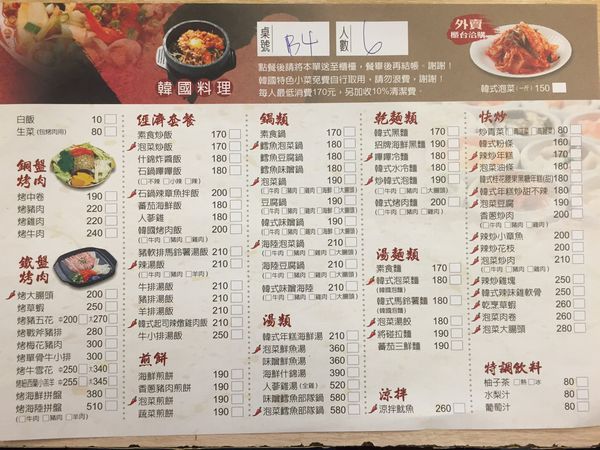 桌號 B4
人數 6
外賣
櫃台洽購
韓國料理
點餐後請將本單送至櫃檯，餐畢後再結帳。謝謝！
韓國特色小菜免費自行取用，請勿浪費，謝謝！
每人最低消費170元，另加收10%清潔費。
韓式泡菜(一斤) 150
白飯 10
生菜(包烤肉用) 80
銅盤烤肉
烤中卷 190
烤豬肉 220
烤雞肉 220
烤牛肉 240
鐵盤烤肉
烤大腸頭 200
烤草蝦 250
烤豬五花 200 270
烤戰斧豬排 380
烤梅花豬肉 300
烤單骨牛小排 300
烤牛雪花 250 345
340
烤海鮮拼盤 380
烤海陸拼盤 510
(牛肉 豬肉 羊肉)
經濟套餐
素食炒飯 170
泡菜炒飯 170
什錦炸醬飯 180
石鍋嗶嗶飯 180
(不辣 小辣 辣)
石鍋辣章魚拌飯 200
蕃茄海鮮飯 180
人蔘雞 180
韓國烤肉飯 200
(牛肉 豬肉 雞肉)
豬軟排馬鈴薯湯飯 210
辣湯飯 210
(牛肉 豬肉 羊肉)
牛排湯飯 210
豬排湯飯 210
羊排湯飯 210
韓式起司辣燉雞肉飯 210
牛小排湯飯 250
煎餅
海鮮煎餅 190
香蔥豬肉煎餅 190
泡菜煎餅 190
蔬菜煎餅 190
鍋類
素食鍋 190
鱈魚泡菜鍋 190
鱈魚豆腐鍋 190
鱈魚味噌鍋 190
泡菜鍋 190
豆腐鍋 190
韓式味噌鍋 190
海陸泡菜鍋 210
海陸豆腐鍋 210
韓式味噌海陸 210
湯類
韓式年糕海鮮湯 210
泡菜鮮魚湯 350
味噌鮮魚湯 350
海鮮什錦湯 390
人蔘雞湯(全雞) 550
味噌鱈魚部隊鍋 580
泡菜鱈魚部隊鍋 580
乾麵類
韓式黑麵 170
招牌海鮮黑麵 190
嗶嗶冷麵 180
韓式水冷麵 180
炒韓式泡麵 190
(牛肉 豬肉 雞肉)
韓式烤肉麵 200
(牛肉 豬肉 雞肉)
湯麵類
素食麵 170
韓式泡菜麵 180
(韓國泡麵)
韓式馬鈴薯麵 180
(韓國泡麵)
泡菜湯餃 180
將碰拉麵 190
蕃茄三鮮麵 190
涼拌
涼拌魷魚 260
快炒
炒青菜 80
韓式粉條 180
辣炒年糕 180
泡菜油條 180
180
韓式年糕炒甜不辣 190
泡菜豆腐 190
香蔥炒肉 190
辣炒小章魚 200
辣炒花枝 200
泡菜炒肉 210
辣炒雞塊 250
韓式辣味雞軟骨 250
乾烹草蝦 250
泡菜肉卷 250
泡菜大腸頭 280
特調飲料
柚子茶 (熱 冰) 80
水梨汁 80
葡萄汁 80